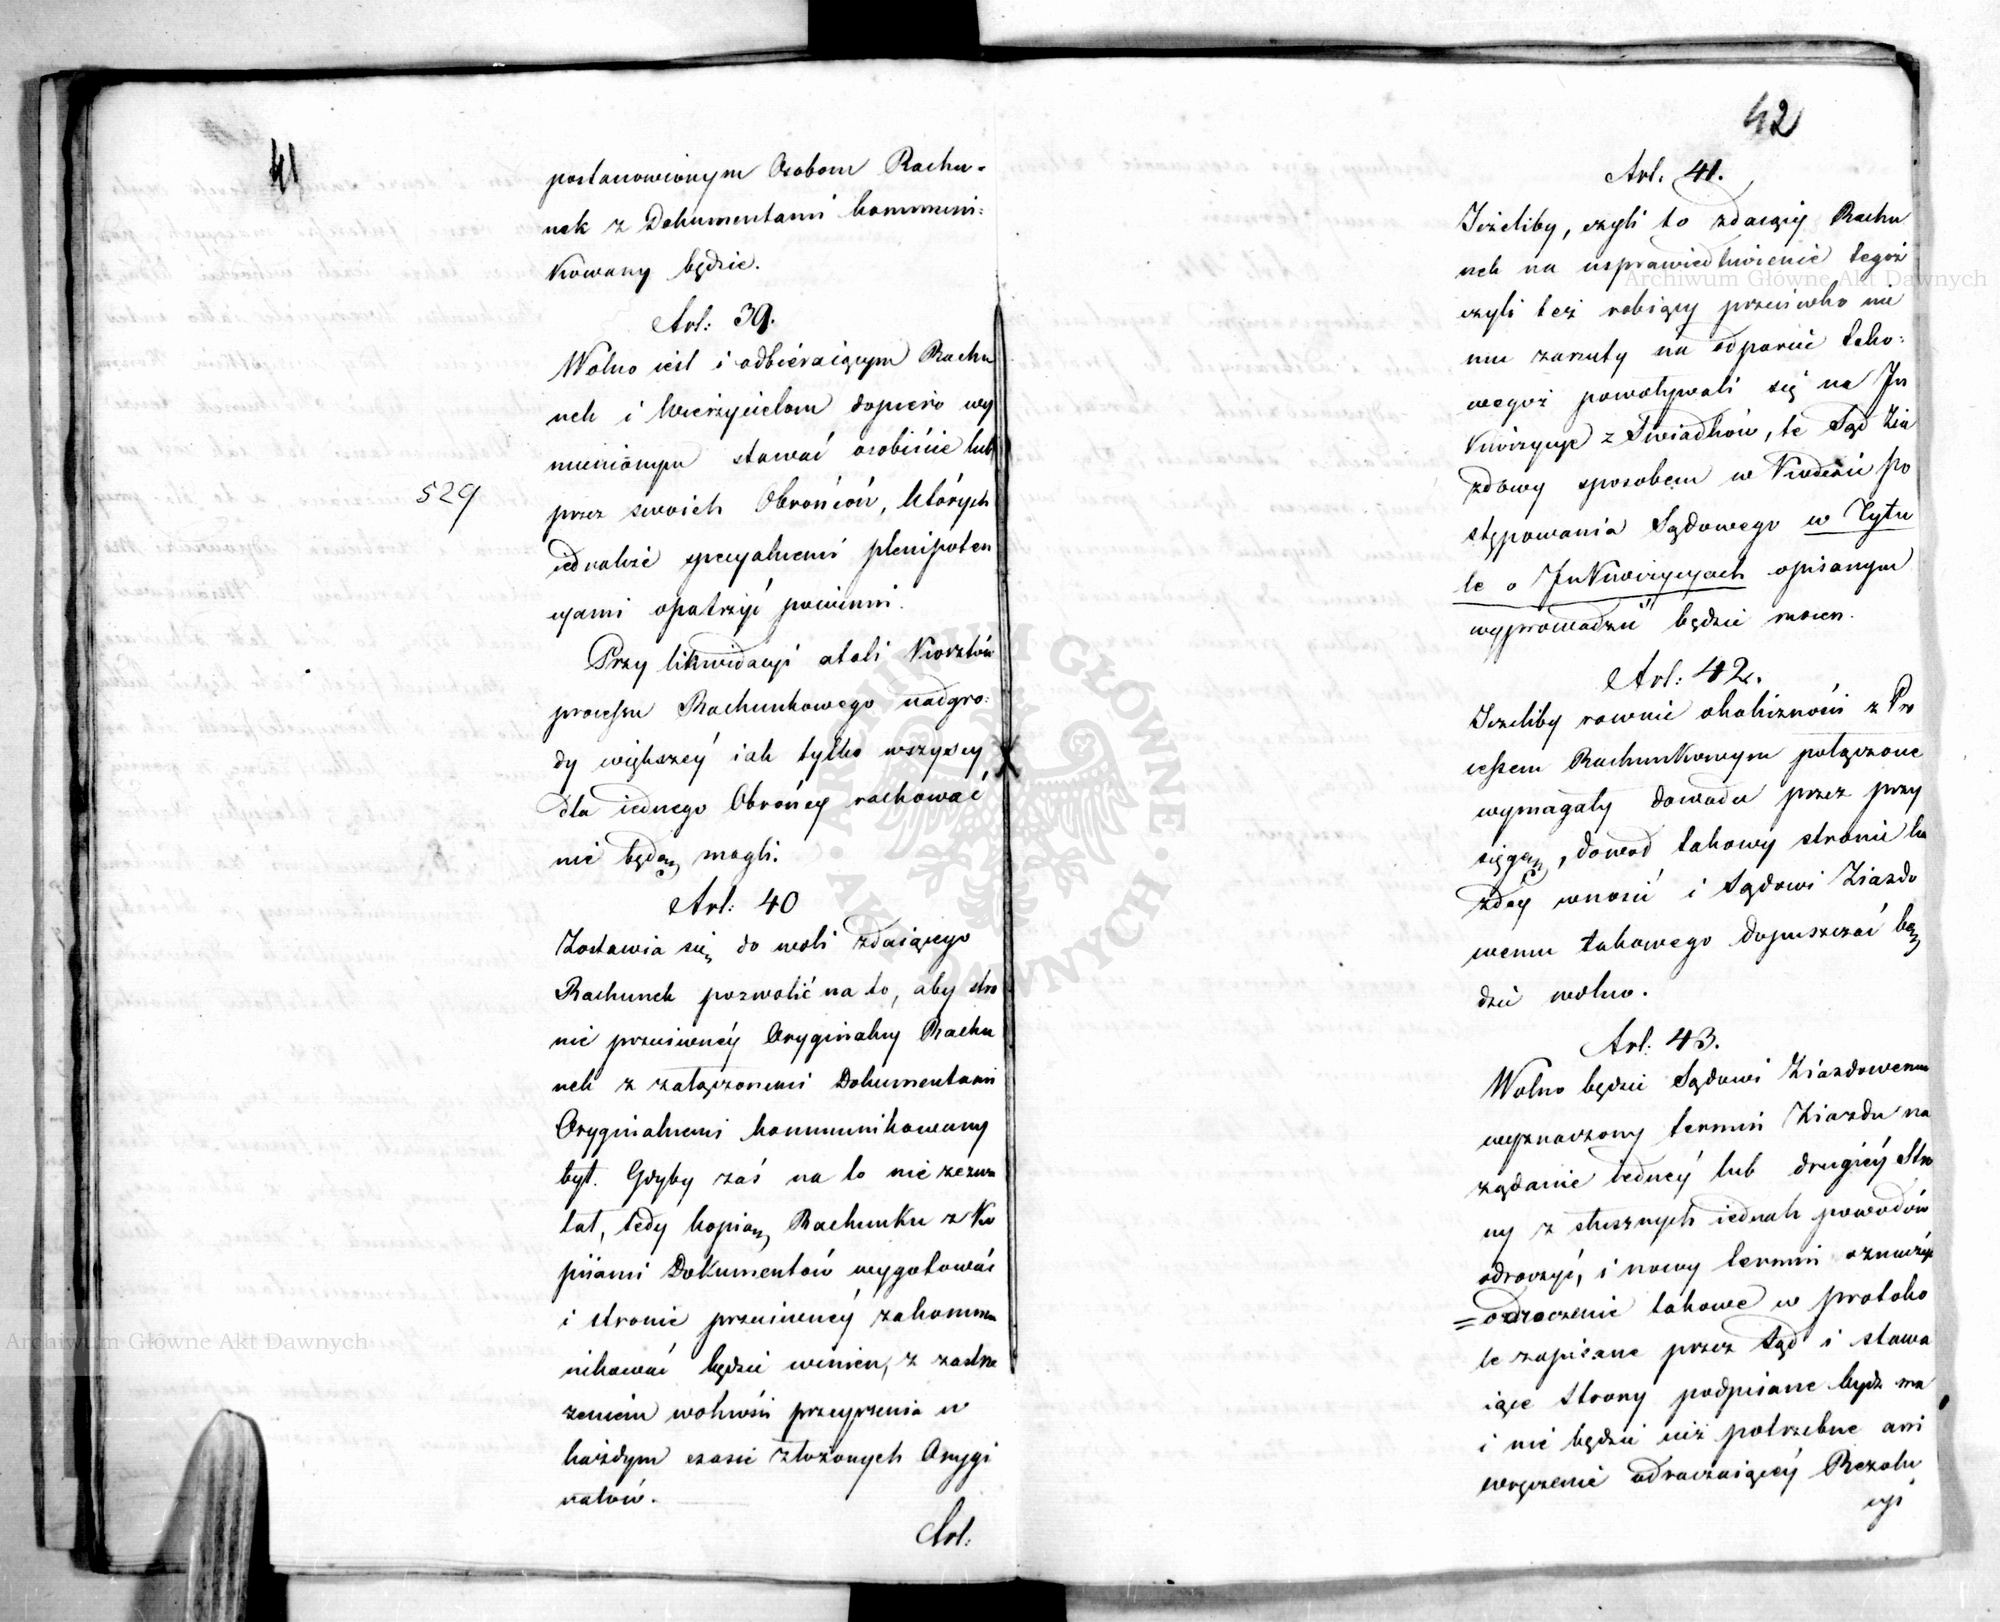 41
postanowionym Osobom Rachu-
nek z Dokumentami kommuni:
kowany będzie.
Art: 39.
Wolno iest i odbieraiącym Rachu
nek i Wierzycielom dopiero wy
mienionym stawać osobiście lub
529
przez swoich Obrońców, których
iednakże specyalnemi plenipoten
cyami opatrzyć powinni.
Przy likwidacyi atoli Kosztów
processu Rachunkowego nadgro:
dy większéy iak tylko wszyscy
dla iednego Obrońcy rachować
nie będą mogli.
Art: 40
Zostawia się do woli zdaiącego
Rachunek pozwolić na to, aby stro
nie przeciwnéy Oryginalny Rachu
nek z załączonemi Dokumentami
Oryginalnemi kommunikowany
był. Gdyby zaś na to nie zezwa
lał, tedy kopią Rachunku z Ko
piiami Dokumentów wygotować
i stronie przeciwnéy zakommu
nikować będzie winien, z zastrze
żeniem wolności przeyrzenia w
każdym czasie złożonych Orygi
nałów.
Art:
42
Art. 41.
Jeżeliby, czyli to zdaiący Rachu
nek na usprawiedliwienie tegoż
czyli też robiący przeciwko nie
mu zarzuty na odparcie tako:
wegoż powoływali się na In
kwizycye z Świadków, te Sąd Zia
zdowy sposobem w Kodexie po
stępowania Sądowego w Tytu
le o Inkwizycyach opisanym
wyprowadzić będzie mocen.
Art: 42.
Jeżeliby rownie okoliczności z Pro
cessem Rachunkowym połączone
wymagały dowodu przez przy
sięgę, dowod takowy stronie ka
zdéy wnosić i Sądowi Ziazdo
wemu takowego dopuszczać bę
dzie wolno.
Art: 43.
Wolno będzie Sądowi Ziazdowemu
wyznaczony termin Ziazdu na
ządanie iednéy lub drugiéy Stro
ny z słusznych iednak powodów
odroczyć, i nowy termin oznaczyć
= odroczenie takowe w protoko
le zapisane przez Sąd i stawa
iące Strony podpisane bydz ma
i nie będzie iuż potrzebne ani
wręczenie odraczaiącéy Rezolu
cyi
Archiwum Główne Akt Dawnych
Archiwum Główne Akt Dawnych
ARCHIWUM GŁÓWNE · AKT DAWNYCH ·